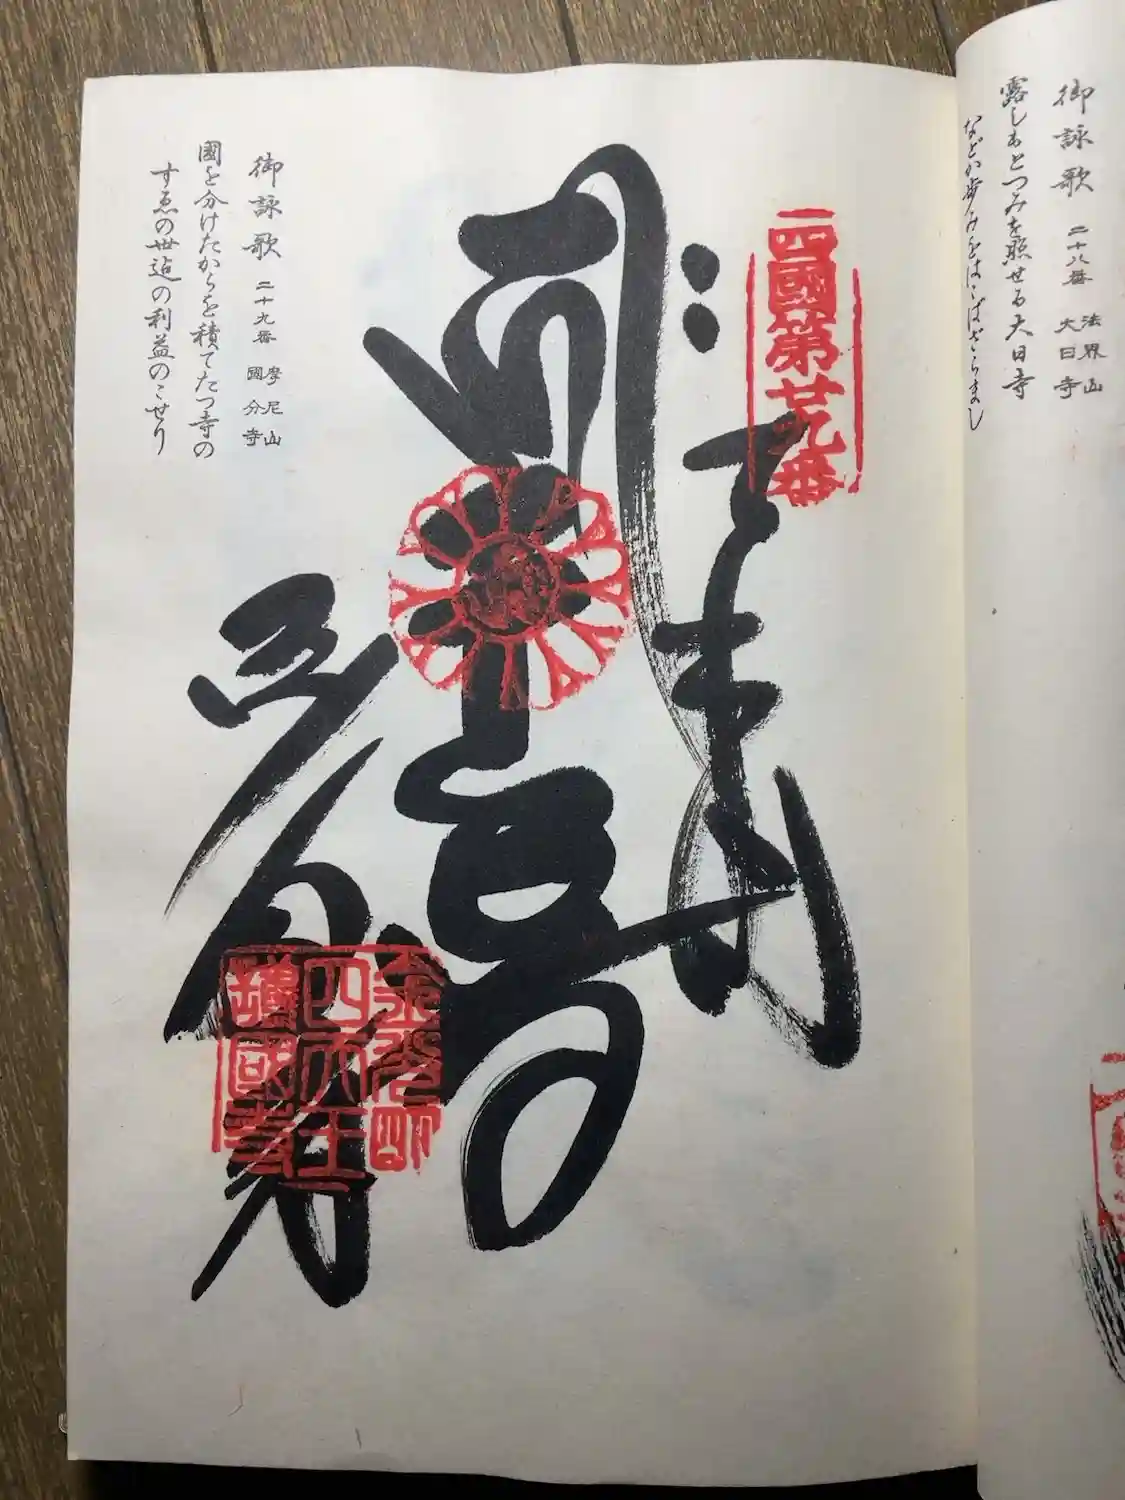 御詠歌 二十八番 法界山 大日寺
露しもとつみを照せる大日寺
などか歩みをはこばざらまし
四國第廿九番
奉
千手
國分寺
金光明
四天王
護國寺
御詠歌 二十九番 摩尼山 國分寺
國を分けたからを積てたつ寺の
すゑの世迠の利益のこせり